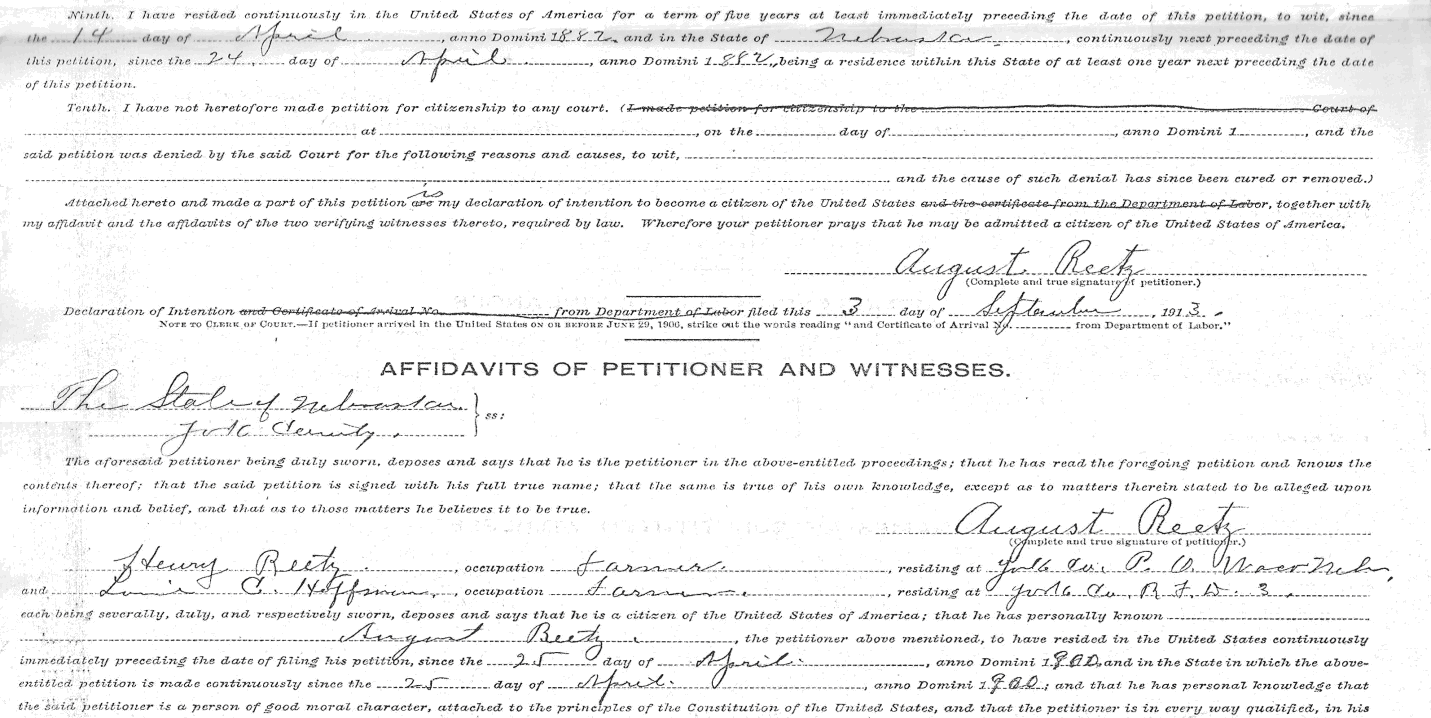 Ninth. I have resided continuously in the United States of America for a term of five years at least immediately preceding the date of this petition, to wit, since
the 14 day of April, anno Domini 1882, and in the State of Nebraska, continuously next preceding the date of
this petition, since the 24 day of April, anno Domini 1882, being a residence within this State of at least one year next preceding the date
of this petition.
Tenth. I have not heretofore made petition for citizenship to any court. (I made petition for citizenship to the Court of
at , on the day of , anno Domini 1 , and the
said petition was denied by the said Court for the following reasons and causes, to wit,
and the cause of such denial has since been cured or removed.)
is
Attached hereto and made a part of this petition are my declaration of intention to become a citizen of the United States and the certificate from the Department of Labor, together with
my affidavit and the affidavits of the two verifying witnesses thereto, required by law. Wherefore your petitioner prays that he may be admitted a citizen of the United States of America.
August Reetz
(Complete and true signature of petitioner.)
Declaration of Intention and Certificate of Arrival No. from Department of Labor filed this 3 day of September, 1913.
NOTE TO CLERK OF COURT.—If petitioner arrived in the United States ON OR BEFORE JUNE 29, 1906, strike out the words reading "and Certificate of Arrival No. from Department of Labor."
AFFIDAVITS OF PETITIONER AND WITNESSES.
The State of Nebraska. } ss:
York County.
The aforesaid petitioner being duly sworn, deposes and says that he is the petitioner in the above-entitled proceedings; that he has read the foregoing petition and knows the
contents thereof; that the said petition is signed with his full true name; that the same is true of his own knowledge, except as to matters therein stated to be alleged upon
information and belief, and that as to those matters he believes it to be true.
August Reetz
(Complete and true signature of petitioner.)
Henry Reetz, occupation Farmer, residing at York Co. P. O. Waco Neb,
and Louie C. Hoffman, occupation Farmer, residing at York Co, R. F. D. 3.
each being severally, duly, and respectively sworn, deposes and says that he is a citizen of the United States of America; that he has personally known
August Reetz, the petitioner above mentioned, to have resided in the United States continuously
immediately preceding the date of filing his petition, since the 25 day of April, anno Domini 1900, and in the State in which the above-
entitled petition is made continuously since the 25 day of April, anno Domini 1900; and that he has personal knowledge that
the said petitioner is a person of good moral character, attached to the principles of the Constitution of the United States, and that the petitioner is in every way qualified, in his